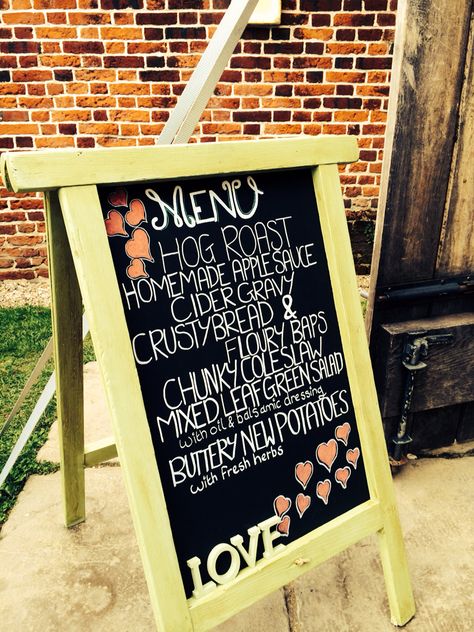 MENU
HOG ROAST
HOMEMADE APPLE SAUCE
CIDER GRAVY
CRUSTY BREAD &
FLOURY BAPS
CHUNKY COLESLAW
MIXED LEAF GREEN SALAD
with oil & balsamic dressing
BUTTERY NEW POTATOES
with fresh herbs
LOVE